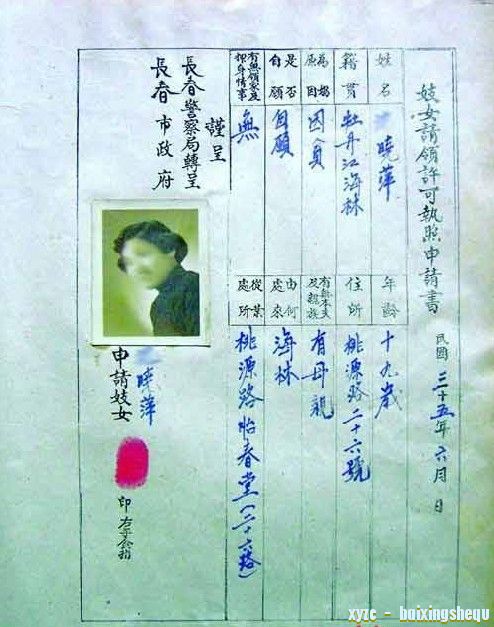 妓女請領許可執照申請書
民國三十五年六月 日
姓名
曉萍
年齡
十九歲
籍貫
牡丹江海林
住所
桃源路二十六號
為娼原因
因貧
有無本夫及親族
有母親
是否自願
自願
由何處來
海林
有無領家及押身情事
無
從業處所
桃源路怡春堂(二十六號)
謹呈
長春警察局轉呈
長春市政府
申請妓女
曉萍
印
右手食指
xyzc - baixingshequ